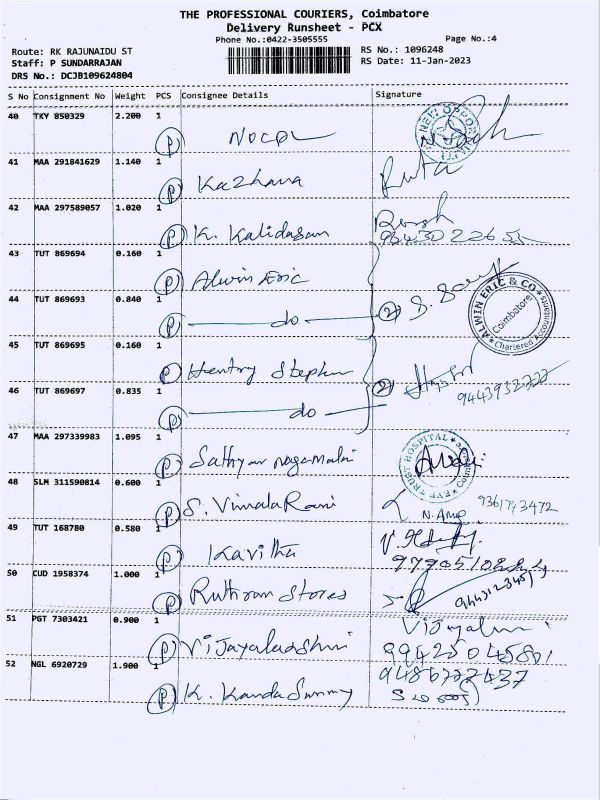 THE PROFESSIONAL COURIERS, Coimbatore
Delivery Runsheet - PCX
Phone No.:0422-3505555
Page No.:4
Route: RK RAJUNAIDU ST
RS No.: 1096248
Staff: P SUNDARRAJAN
RS Date: 11-Jan-2023
DRS No.: DCJB109624804
S No Consignment No Weight PCS Consignee Details Signature
40 TKY 850329 2.200 1
P
41 MAA 291841629 1.140 1
P Kazhana
42 MAA 297589057 1.020 1
P K. Kalidasan
43 TUT 869694 0.160 1
P Alwin Eric
44 TUT 869693 0.840 1
P do 2
ALWIN ERIC & CO
Coimbatore
Chartered Accountants
45 TUT 869695 0.160 1
P Hentry Stephen
46 TUT 869697 0.835 1
P do 2
47 MAA 297339983 1.095 1
P
EYE TRUST HOSPITAL
48 SLM 311590814 0.600 1
P S. Vimala Rani
9361743472
49 TUT 168780 0.580 1
P Kavitha
50 CUD 1958374 1.000 1
P Ruthram Stores
51 PGT 7303421 0.900 1
P Vijayalakshmi
52 NGL 6920729 1.900 1
P K. Kanda Sammy